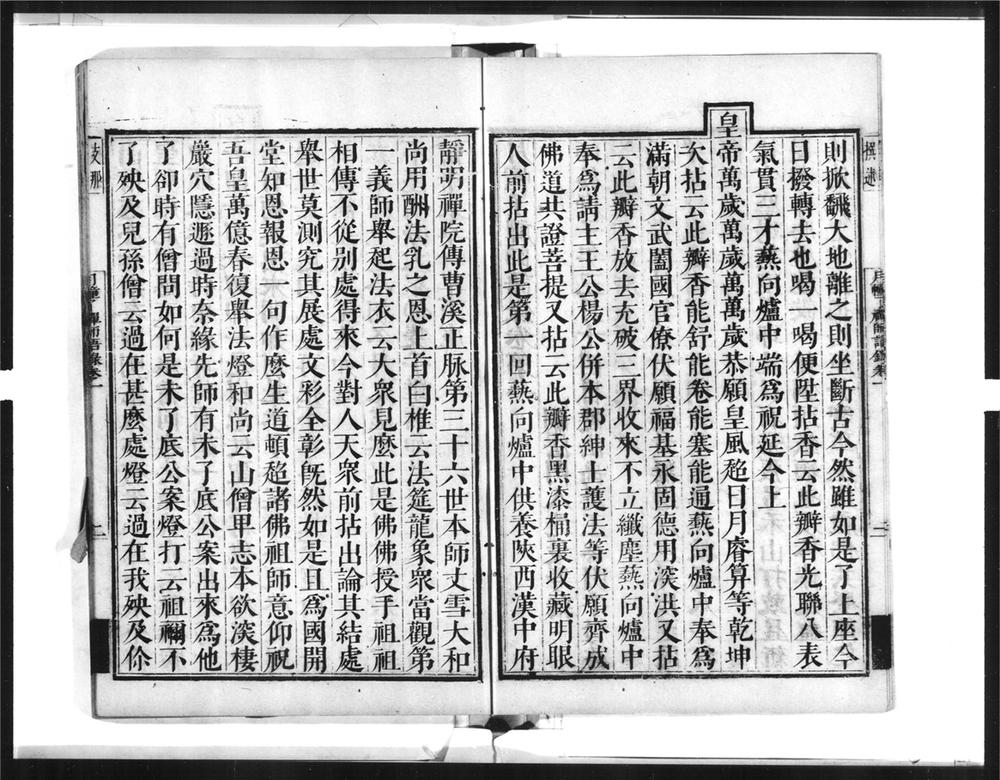 則掀飜大地離之則坐斷古今然雖如是了上座今
日撥轉去也喝一喝便陞拈香云此瓣香光聯八表
氣貫三才爇向爐中端爲祝延今上
皇帝萬歲萬歲萬萬歲恭願皇風越日月睿算等乾坤
次拈云此瓣香能舒能卷能塞能通爇向爐中奉爲
滿朝文武闔國官僚伏願福基永固德用深洪又拈
云此瓣香放去充破三界收來不立纖塵爇向爐中
奉爲請主王公楊公併本郡紳士護法等伏願齊成
佛道共證菩提又拈云此瓣香黑漆桶裏收藏明眼
人前拈出此是第 回爇向爐中供養陝西漢中府
靜明禪院傳曹溪正脉第三十六世本師丈雪大和
尚用酬法乳之恩上首白椎云法筵龍象衆當觀第
一義師舉起法衣云大衆見麼此是佛佛授手祖祖
相傳不從別處得來今對人天衆前拈出論其結處
舉世莫測究其展處文彩全彰旣然如是且爲國開
堂知恩報恩一句作麼生道頓越諸佛祖師意仰祝
吾皇萬億春復舉法燈和尚云山僧甲志本欲深棲
巖穴隱遯過時奈緣先師有未了底公案出來爲他
了卻時有僧問如何是未了底公案燈打云祖禰不
了殃及兒孫僧云過在甚麼處燈云過在我殃及你
支那